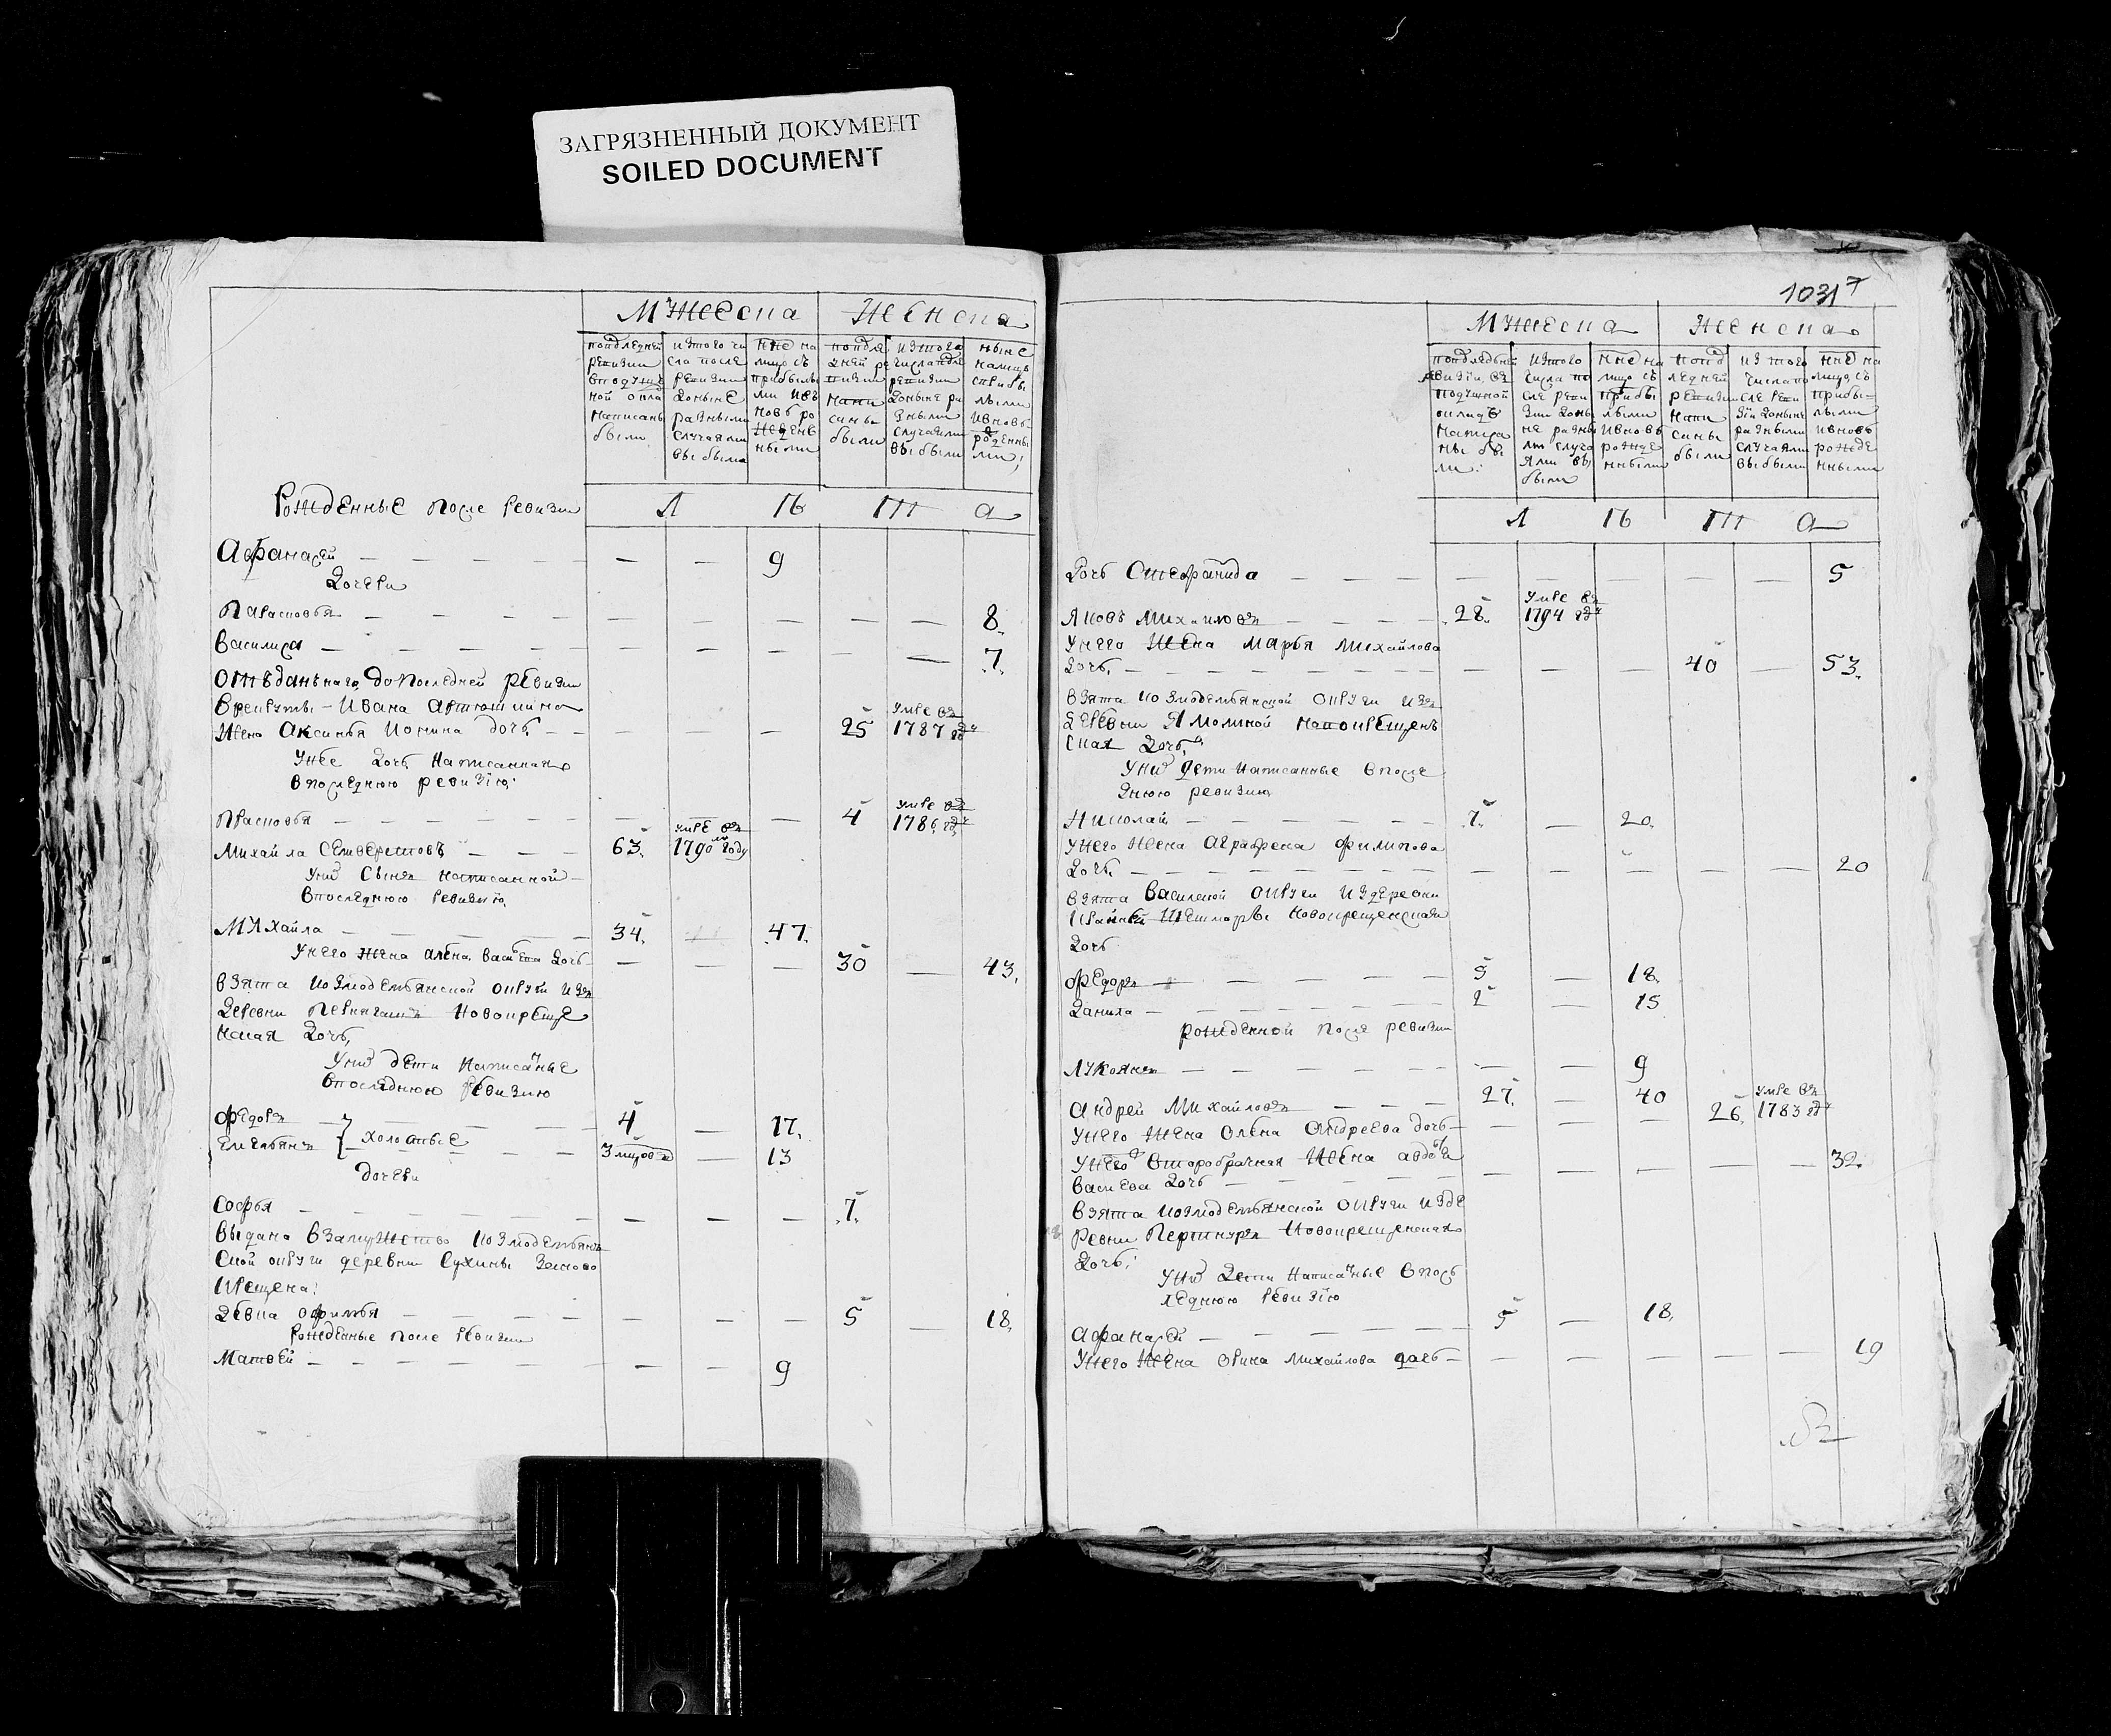 ЗАГРЯЗНЕННЫЙ ДОКУМЕНТ
SOILED DOCUMENT
Мужеска Женска
последней ревизии в подушной оклад написаны были
изтого числа после ревизии доныне разными случаями выбыло
ныне на лицо съ прибылыми и вновь рожденными
последней ревизии написаны были
изтого числа после ревизии доныне разными случаями выбыли
ныне на лицо с прибылыми и вновь рожденными
Рожденные после ревизии Л Ѣ Т а
Афанасей — — 9
Дочери
Парасковья — — — — — 8
Василиса — — — — — 7
Отъданънаго до последней ревизии
Врекруты Ивана
Жена Аксинья Ионина дочь — — — 25 умре въ 1787 году
Унее дочь написанная
в последнюю ревизию
Прасковья — — — 4 умре въ 1786 году
Михайла 63 умре въ 1790 году
Унего сынъ написанной
впоследнюю ревизию
Михайла 34 — 47
Унего жена Алена Васильева дочь — — — 30 — 43
взята Козмодемьянской округи изъ
деревни новокреще
нская дочь
Уних дети написаные
впоследнюю ревизию
Федоръ 4 — 17
холостые
— 13
Дочери
Софья — — — 7
выдана взамужство Козмодемьянъ
ской округи деревни Сухины
крещена
Девка Офимья — — — 5 — 18
Рожденные после ревизии
Матвей — — 9
1031
Мужеска Женска
последней ревизии въ подушной окладъ написаны были
изтого числа после ревизии доныне разными случаями выбыли
ныне на лицо съ прибылыми и вновь рожденными
последней ревизии написаны были
изтого числа после ревизии доныне разными случаями выбыли
ныне на лицо съ прибылыми и вновь рожденными
Л Ѣ Т а
Дочь Стефанида — — — — — 5
Яковъ Михаиловъ 28 умре въ 1794 году
Унего жена Марья Михайлова
дочь — — — 40 — 53
взята Козмодемьянской округи изъ
деревни новокрещенъ
ская дочь
Уних дети написанные впосле
днюю ревизию
Николай 7 — 20
Унего жена Аграфена Филипова
дочь — — — — — 20
взята Васильской округи издеревни
новокрещенская
дочь
Федоръ 5 — 18
Данила 2 — 15
Рожденной после ревизии
Лукоянъ — — 9
Андрей Михайловъ 27 — 40
Унего жена Олена Андреева дочь — — — 26 умре въ 1783 году
Унего второбрачная жена Авдотья
Васильева дочь — — — — — 32
взята Козмодемьянской округи изде
ревни новокрещенская
дочь
Уних дети написаные впось
леднюю ревизию
Афанасей 5 — 18
Унего жена Орина Михайлова дочь — — — — — 19